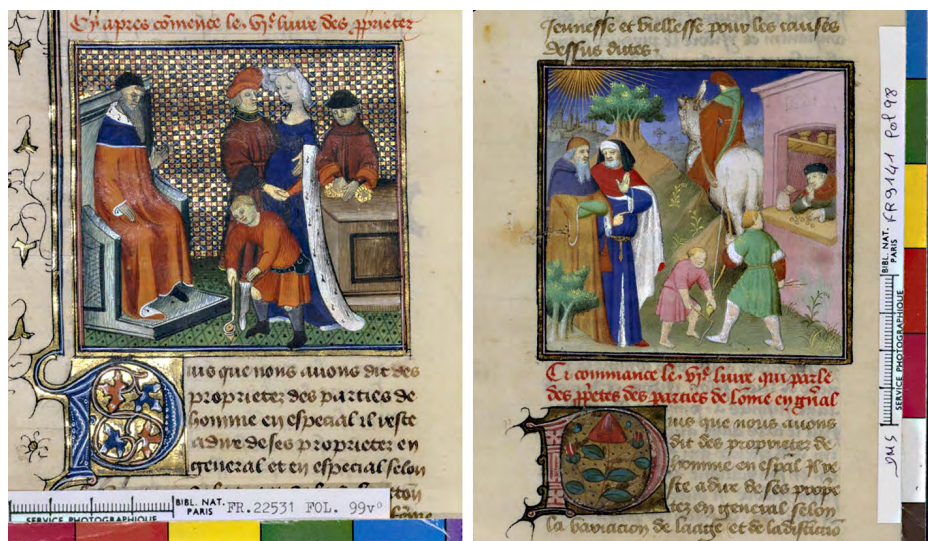 Cy apres cõmence le .vjᵉ. liure des pprietez
Puis que nous auons dit des
proprietez des parties de
homme en especial il reste
a dire de ses proprietez en
general et en especial selon
BIBL. NAT.
PARIS
FR.22531 FOL. 99vº
SERVICE PHOTOGRAPHIQUE
Jeunesse et viellesse pour les causes
dessus dites.
Ci commance le .vjᵉ. liure qui parle
des ppetes des parties de lome en gñal
Puis que nous auons
dit des proprietez de
homme en espal il re
ste a dire de ses prope
tez en general selon
la variacion de laage et de la distictio
BIBL. NAT.
PARIS
FR 9141 fol 98
SERVICE PHOTOGRAPHIQUE